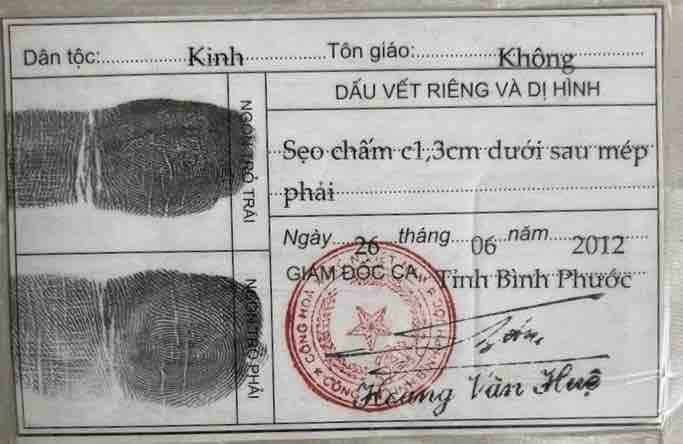 Dân tộc: Kinh Tôn giáo: Không
DẤU VẾT RIÊNG VÀ DỊ HÌNH
NGÓN TRỎ TRÁI
Sẹo chấm c1,3cm dưới sau mép
phải
Ngày 26 tháng 06 năm 2012
GIÁM ĐỐC CA Tỉnh Bình Phước
NGÓN TRỎ PHẢI
CỘNG HÒA
CÔNG
Hoàng Văn Huệ